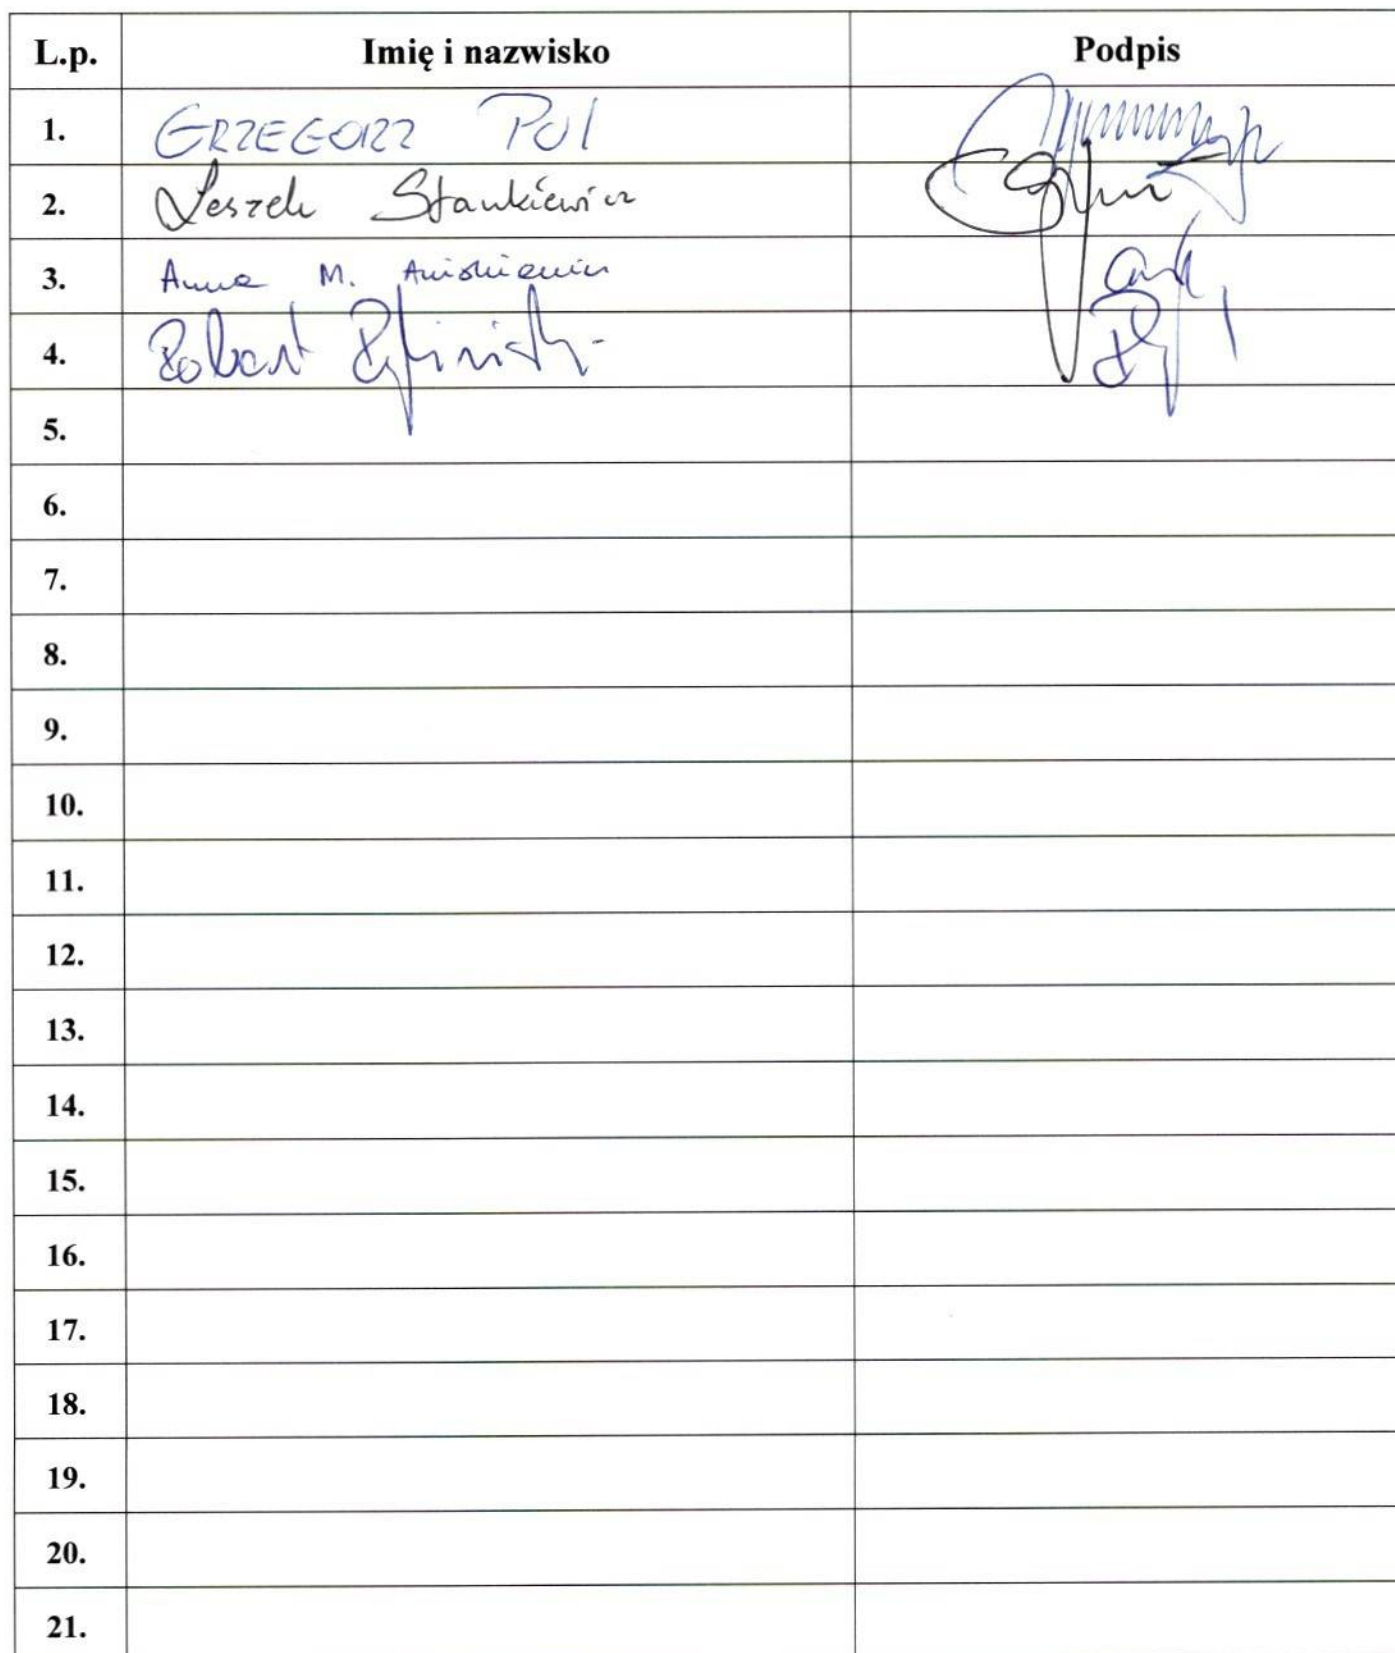 L.p. Imię i nazwisko Podpis
1. GRZEGORZ POL
2. Leszek Stankiewicz
3. Anna M. Aniśkiewicz
4. Robert
5.
6.
7.
8.
9.
10.
11.
12.
13.
14.
15.
16.
17.
18.
19.
20.
21.